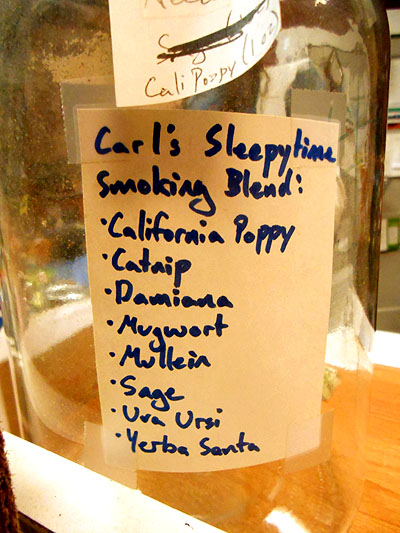 Cali Poppy (100)
Carl's Sleepytime
Smoking Blend:
·California Poppy
·Catnip
·Damiana
·Mugwort
·Mullein
·Sage
·Uva Ursi
·Yerba Santa